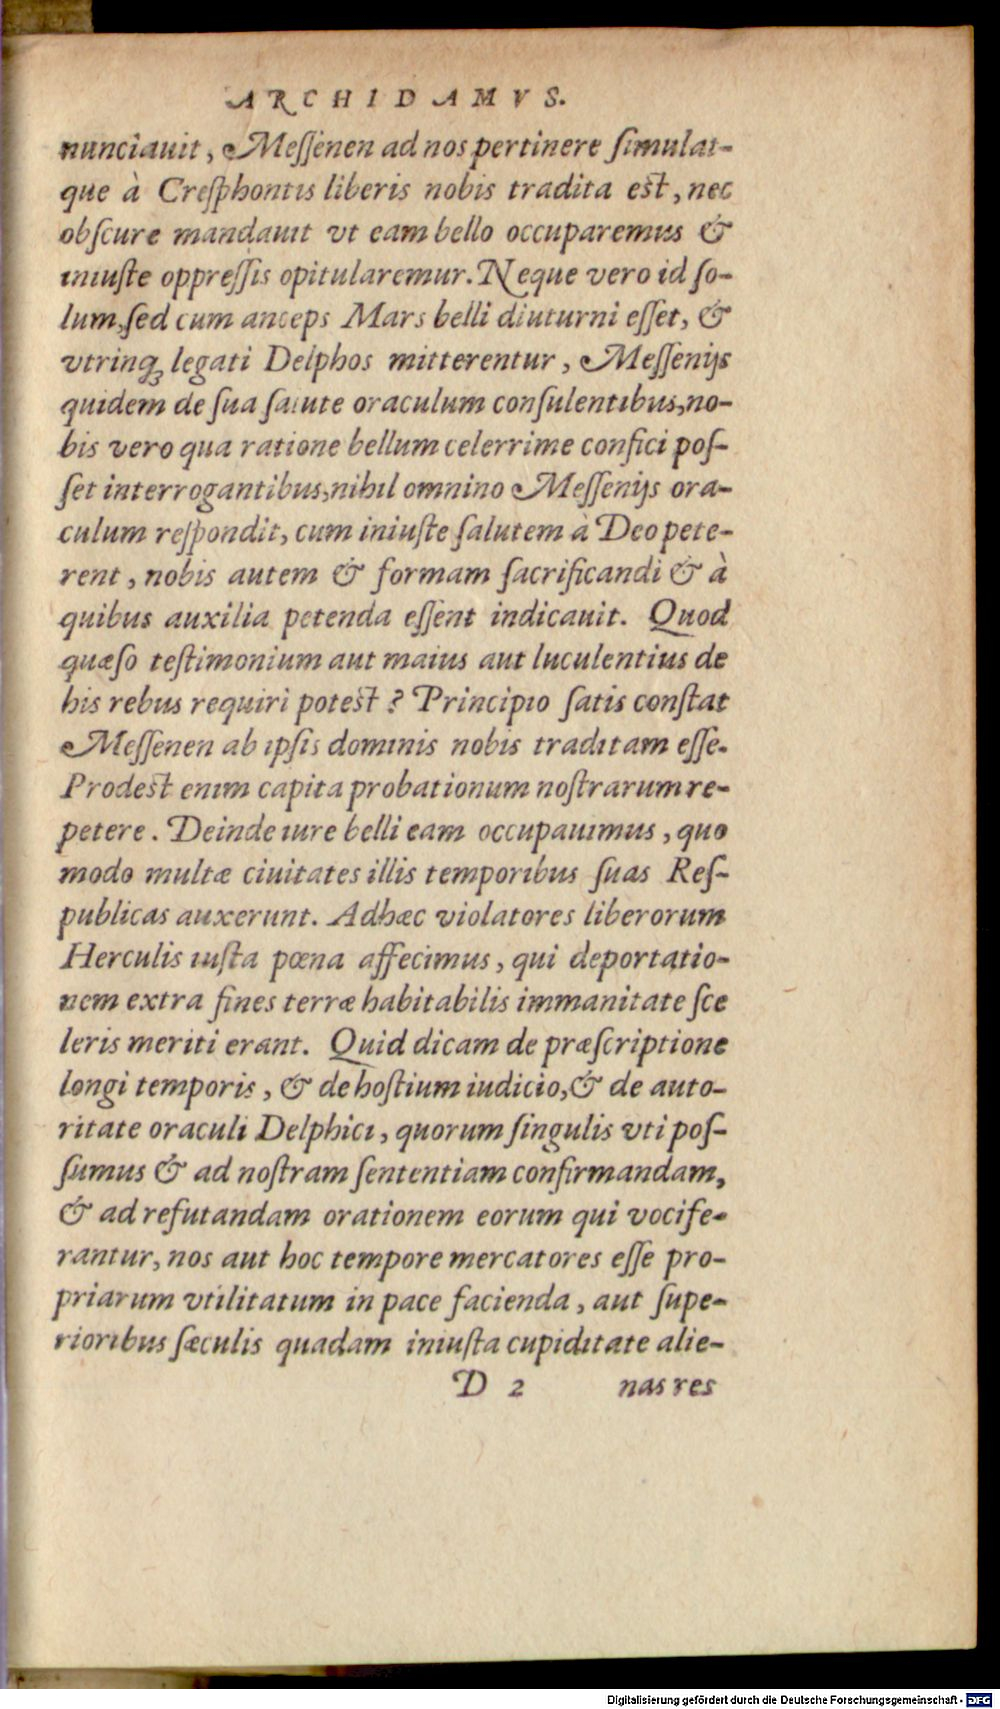 ARCHIDAMVS.
nunciauit, Meſſenen ad nos pertinere ſimulat-
que à Creſphontis liberis nobis tradita est, nec
obſcure mandauit vt eam bello occuparemus &
iniuſte oppreſſis opitularemur. Neque vero id ſo-
lum, ſed cum anceps Mars belli diuturni eſſet, &
vtrinq; legati Delphos mitterentur, Meſſenijs
quidem de ſua ſalute oraculum conſulentibus, no-
bis vero qua ratione bellum celerrime confici poſ-
ſet interrogantibus, nihil omnino Meſſenijs ora-
culum reſpondit, cum iniuſte ſalutem à Deo pete-
rent, nobis autem & formam ſacrificandi & à
quibus auxilia petenda eſſent indicauit. Quod
quæſo teſtimonium aut maius aut luculentius de
his rebus requiri potest? Principio ſatis conſtat
Meſſenen ab ipſis dominis nobis traditam eſſe.
Prodest enim capita probationum noſtrarum re-
petere. Deinde iure belli eam occupauimus, quo
modo multæ ciuitates illis temporibus ſuas Reſ-
publicas auxerunt. Adhæc violatores liberorum
Herculis iuſta pœna affecimus, qui deportatio-
nem extra fines terræ habitabilis immanitate ſce
leris meriti erant. Quid dicam de præſcriptione
longi temporis, & de hoſtium iudicio, & de auto-
ritate oraculi Delphici, quorum ſingulis vti poſ-
ſumus & ad noſtram ſententiam confirmandam,
& ad refutandam orationem eorum qui vocife-
rantur, nos aut hoc tempore mercatores eſſe pro-
priarum vtilitatum in pace facienda, aut ſupe-
rioribus ſæculis quadam iniuſta cupiditate alie-
D 2 nas res
Digitalisierung gefördert durch die Deutsche Forschungsgemeinschaft - DFG